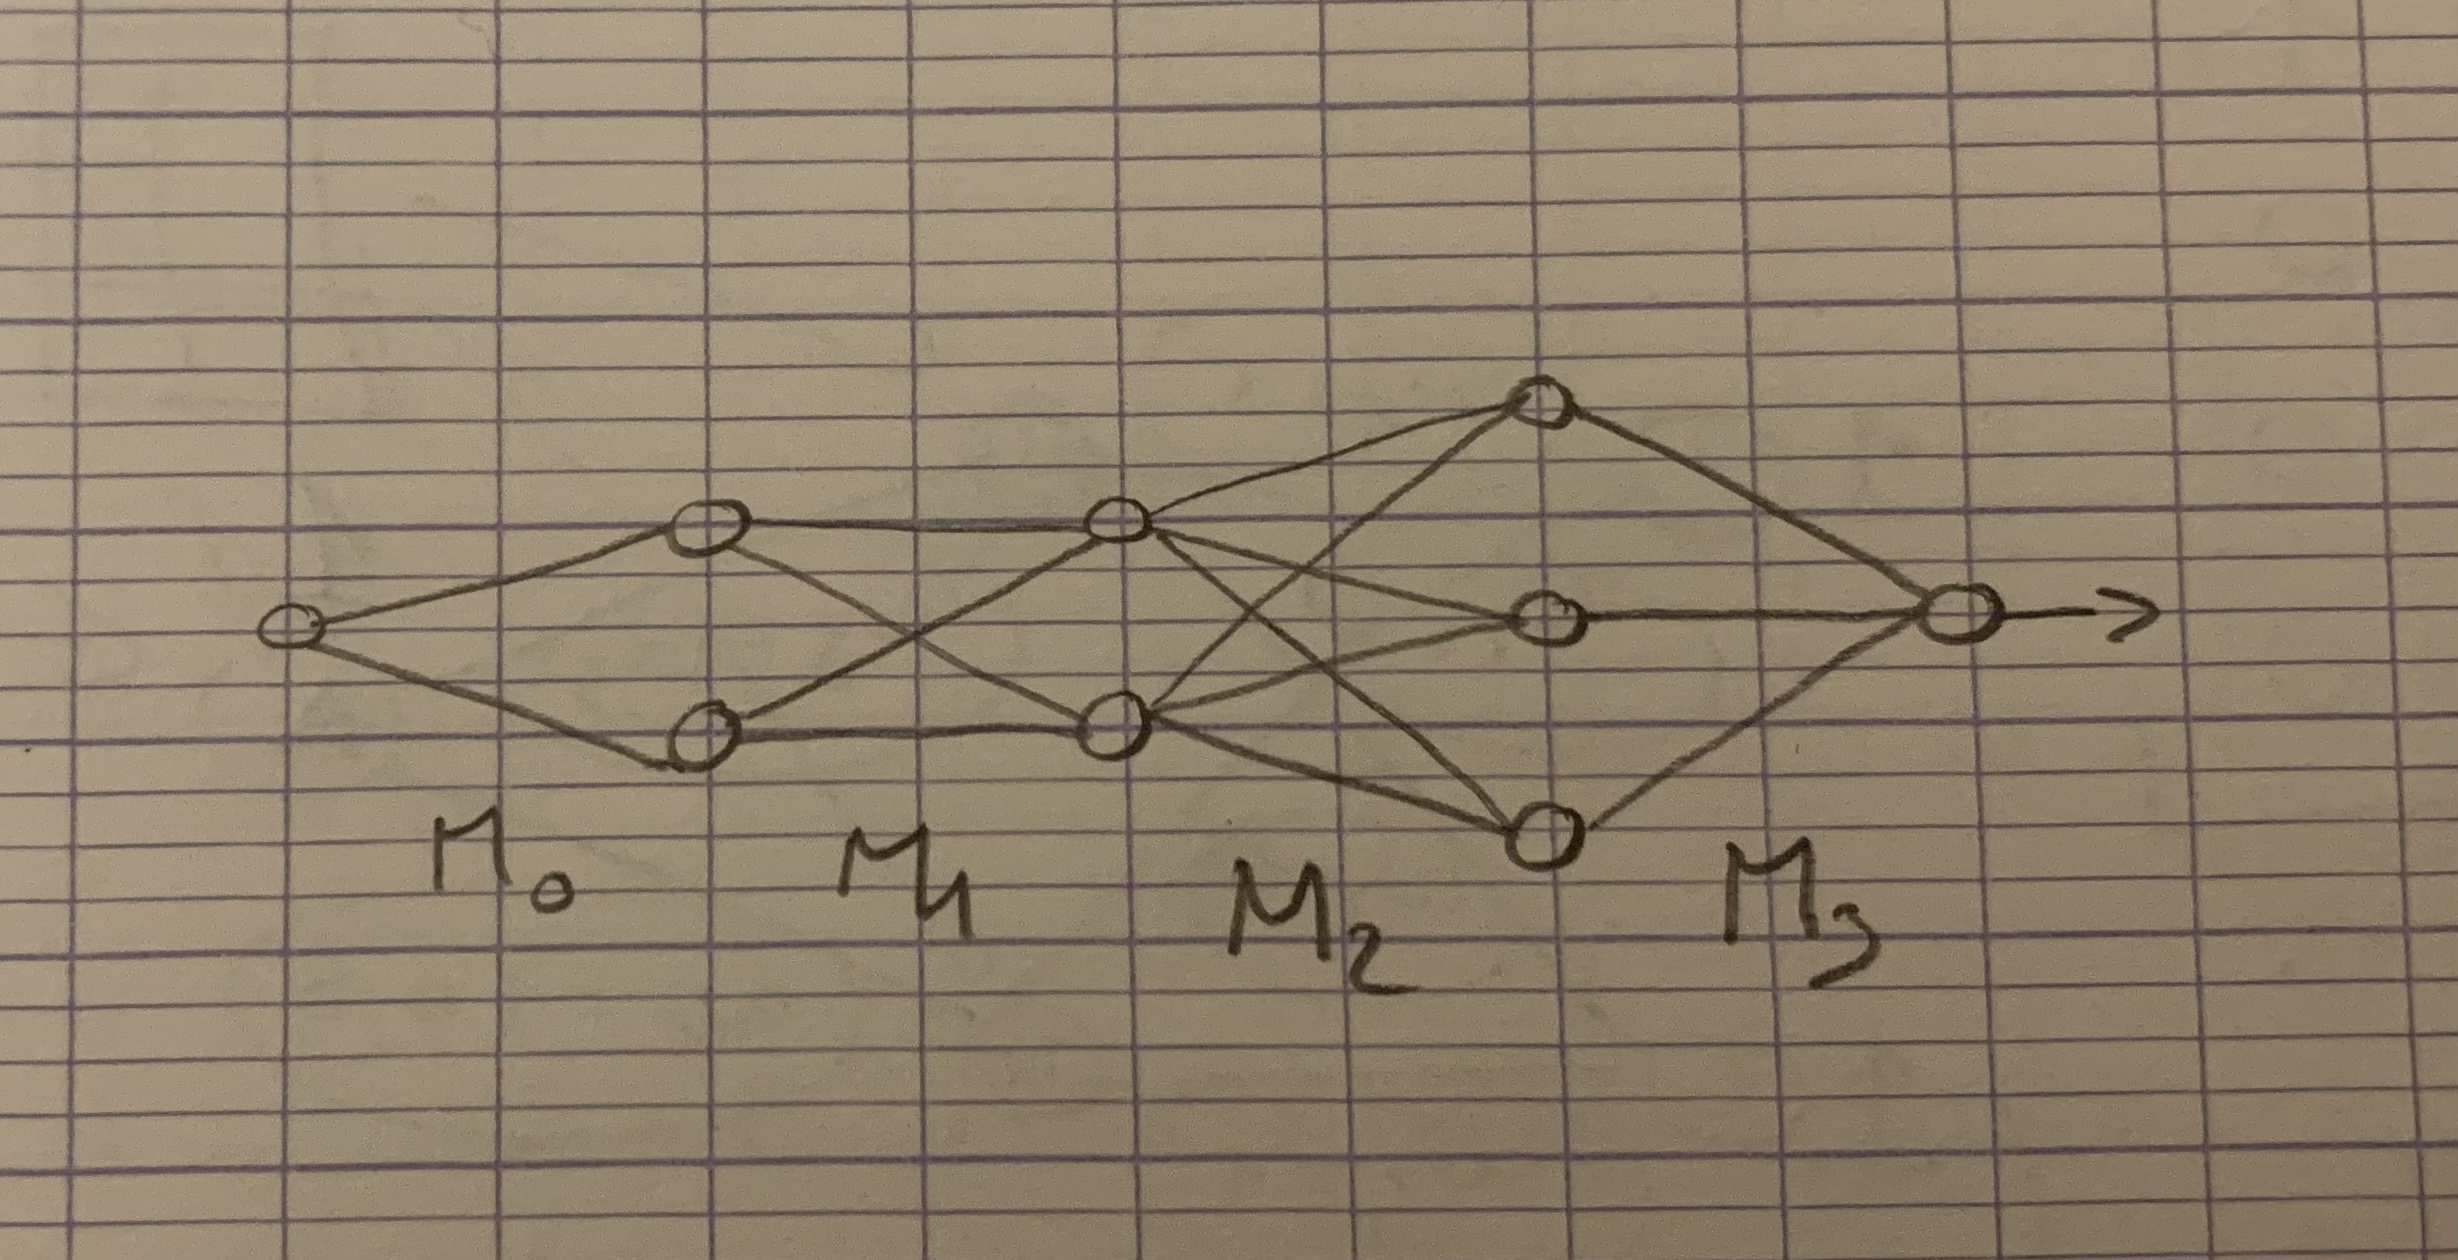 M₀ M₁ M₂ M₃